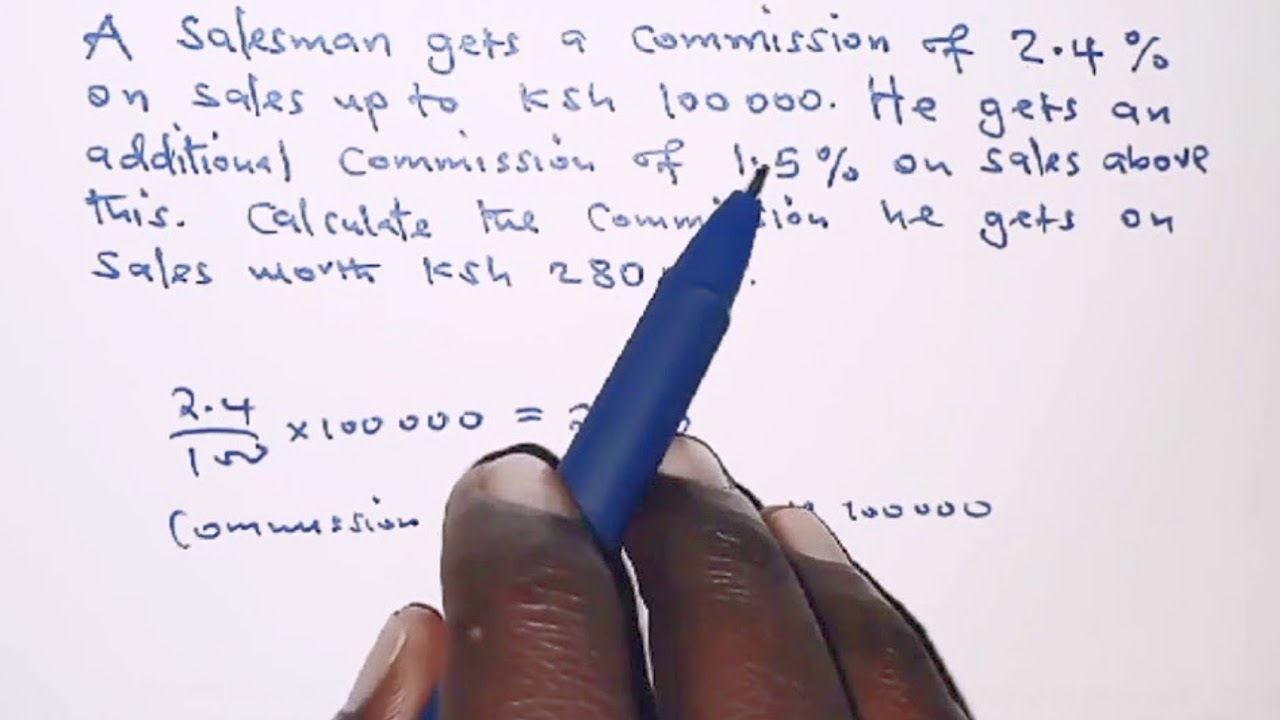 A Salesman gets a commission of 2.4%
on sales up to Ksh 100 000. He gets an
additional commission of 1.5% on sales above
this. Calculate the he gets on
Sales worth Ksh 280
2.4/100 × 100 000 =
Commission 100000